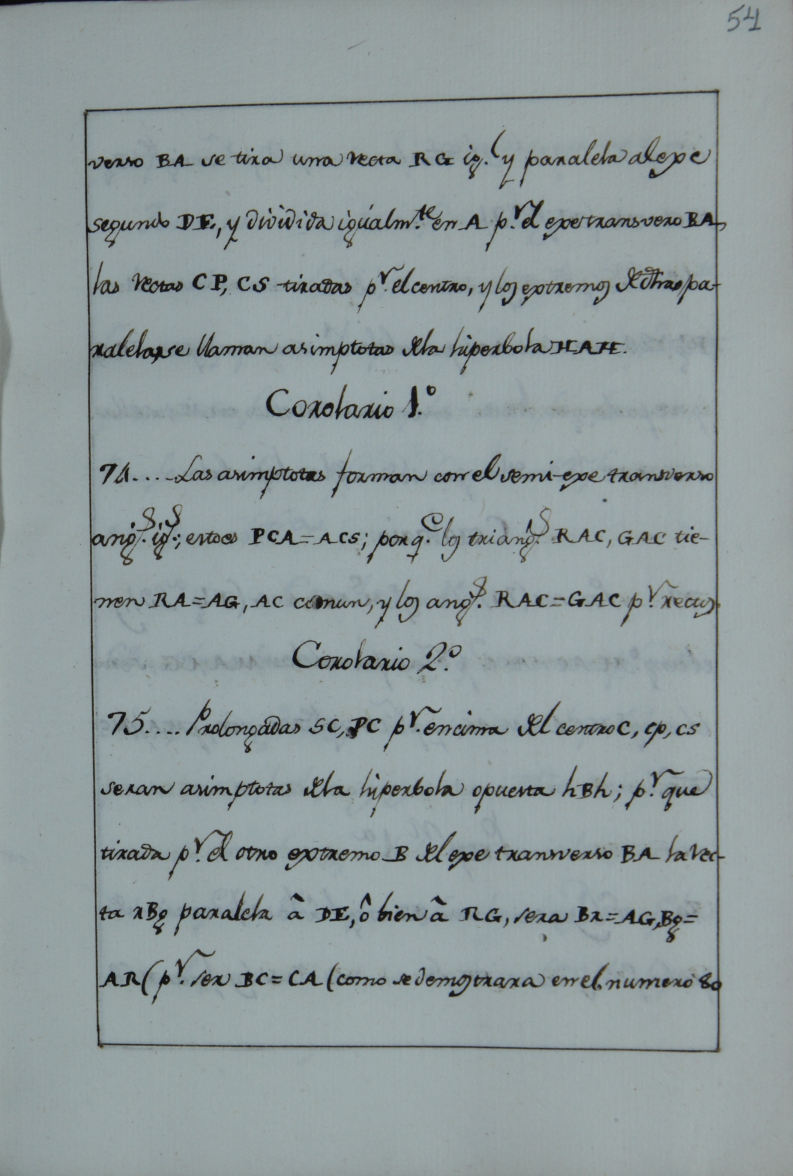 54
verso BA se tira una recta RG ig.l y paralela al exe
segundo DE, y dividida igualm.te en A p.r el exe transvero BA,
las rectas CP, CS tiradas p.r el centro, y los extremos de dhas pa-
ralelas, se llaman asimptotas de la hiperbola HAH.
Corolario 1.º
74.... Las asimptotas forman con el semi-exe transverso
ang.s ig.s; esto es PCA=ACS; porq.e los triang.s RAC, GAC tie-
nen RA=AG, AC comun, y los ang.s RAC=GAC p.r rectos.
Corolario 2.º
75.... Prolongadas SC, PC p.r encima del centro C, cp, cs
seran asimptotas de la hiperbola opuesta hBh; p.r que
tirada p.r el otro extremo B del exe transverso BA la rec-
ta rBg paralela â DE, ô bien â RG, sera Br=AG, Bg=
AR (p.r ser BC=CA (como se demostrara en el numero 80